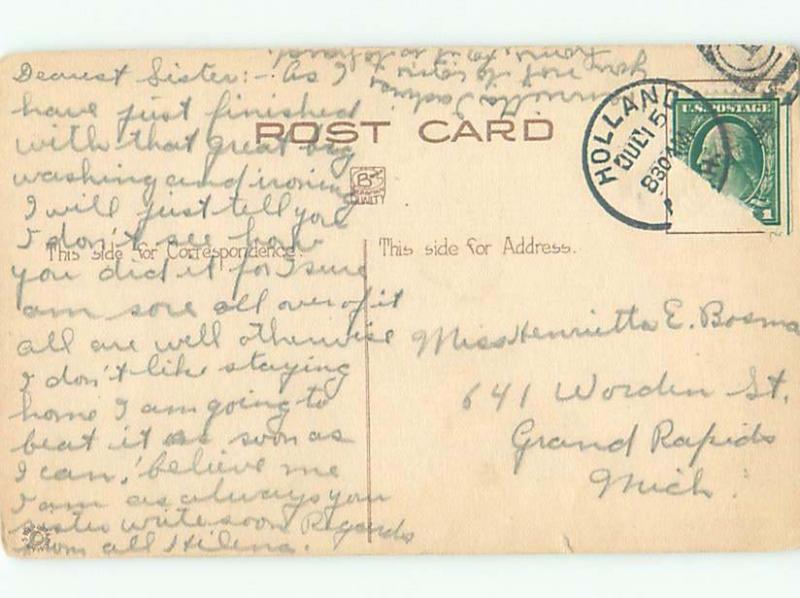 Dearest Sister:- As I
have just finished
with that great big
washing and ironing
I will just tell you
I don't see how
you did it for I sure
am sore all over of it
all are well otherwise
I don't like staying
home I am going to
beat it as soon as
I can, believe me
I am as always your
sister write soon Regards
from all Hilena.
POST CARD
QUALITY
This side for Correspondence.
This side for Address.
HOLLAND
JUL 15
830 AM
U.S. POSTAGE
1
Miss Henrietta E. Bosma
641 Worden St.
Grand Rapids
Mich.